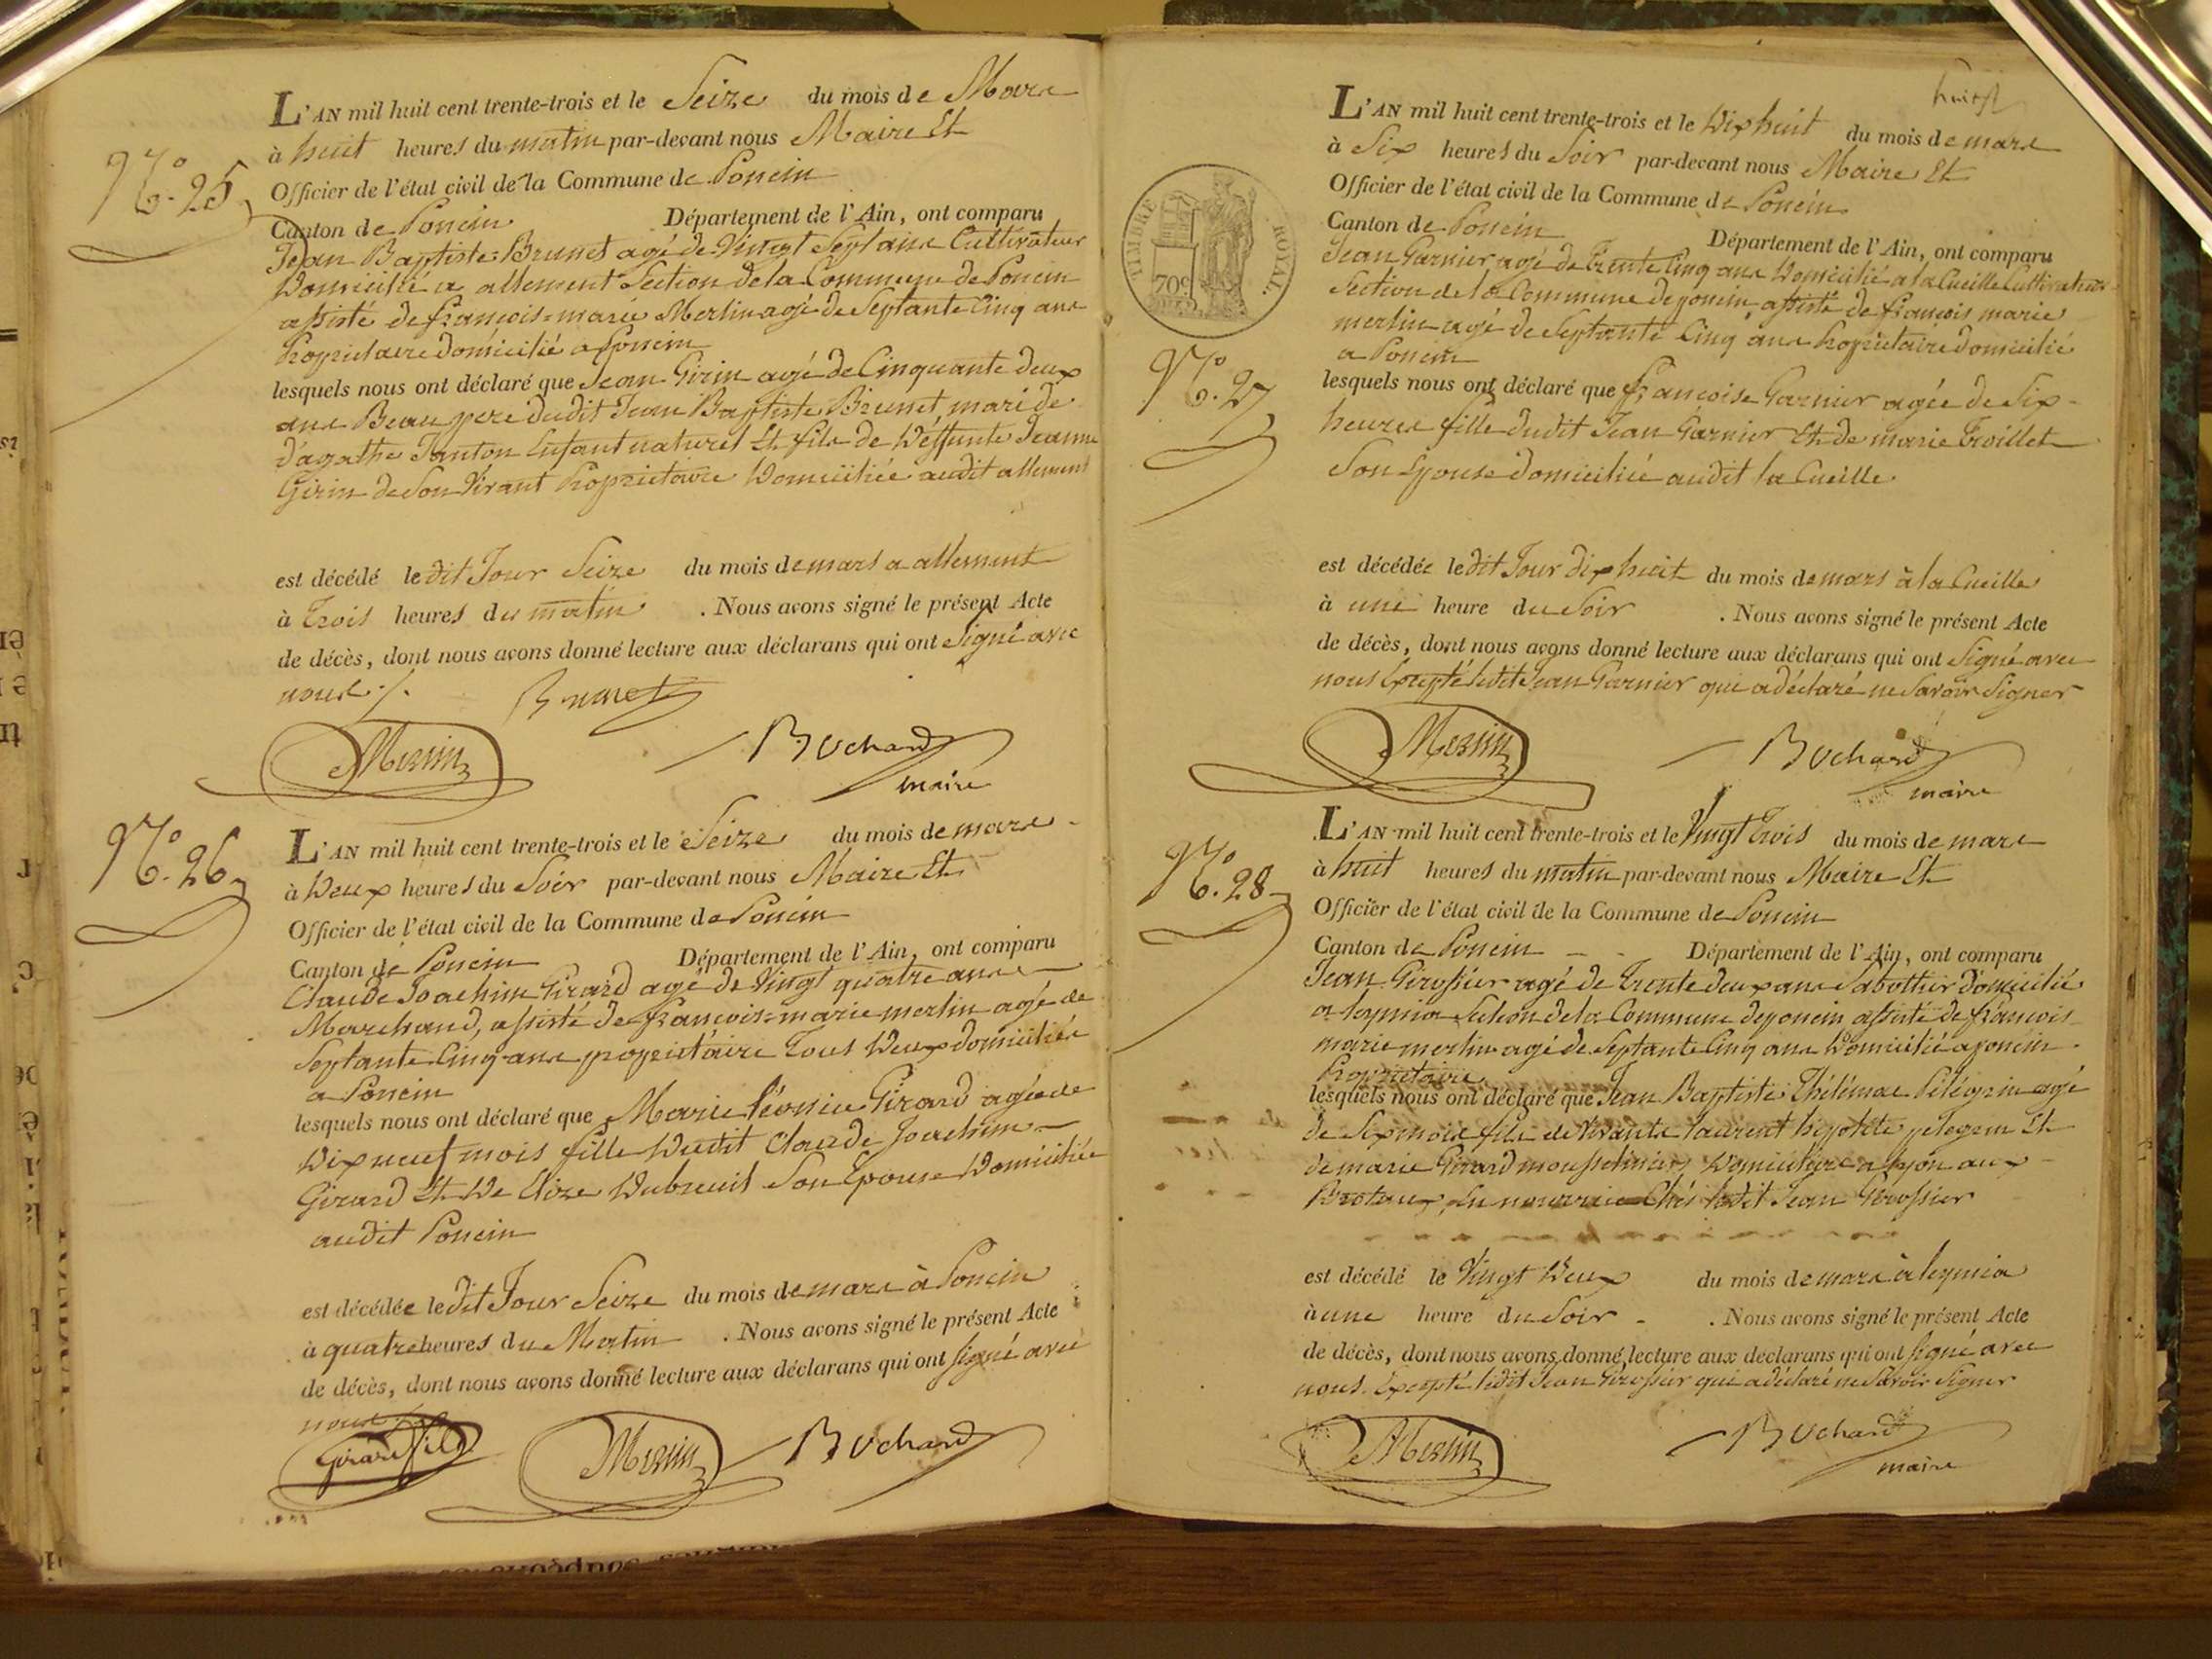 N.° 25
L'AN mil huit cent trente-trois et le Seize du mois de Mars
à huit heures du matin par-devant nous Maire Et
Officier de l'état civil de la Commune de Poncin
Canton de Poncin Département de l'Ain, ont comparu
Jean Baptiste Brunet agé de Vingt Sept ans Cultivateur
Domicilié a allement Section de la Commune de Poncin
assisté de françois-marie Merlin agé de Septante Cinq ans
Propriétaire domicilié a Poncin
lesquels nous ont déclaré que Jean Girin agé de Cinquante deux
ans Beau pere dudit Jean Baptiste Brunet, mari de
d'agathe Janton Enfant naturel Et fils de Deffunte Jeanne
Girin de Son Vivant Propriétaire Domiciliée audit allement
est décédé le dit Jour Seize du mois de mars a allement
à Trois heures du matin . Nous avons signé le présent Acte
de décès, dont nous avons donné lecture aux déclarans qui ont Signé avec
nous ./. Brunet
Merlin Bochard
maire
N.° 26
L'AN mil huit cent trente-trois et le Seize du mois de mars
à Deux heures du Soir par-devant nous Maire Et
Officier de l'état civil de la Commune de Poncin
Canton de Poncin Département de l'Ain, ont comparu
Claude Joachim Girard agé de Vingt quatre ans
Marchand, assisté de françois-marie merlin agé de
Septante Cinq ans propriétaire Tous Deux domiciliés
a Poncin
lesquels nous ont déclaré que Marie Léonie Girard agée de
Dix neuf mois fille Dudit Claude Joachim
Girard Et De Elize Dubreuil Son Epouse Domiciliée
audit Poncin
est décédée le dit Jour Seize du mois de mars à Poncin
à quatre heures du Matin . Nous avons signé le présent Acte
de décès, dont nous avons donné lecture aux déclarans qui ont Signé avec
nous ./.
Girard fils Merlin Bochard
huit
L'AN mil huit cent trente-trois et le Dix huit du mois de mars
à Six heures du Soir par-devant nous Maire Et
Officier de l'état civil de la Commune de Poncin
Canton de Poncin Département de l'Ain, ont comparu
TIMBRE ROYAL.
70c
N.° 27
Jean Garnier agé de Trente Cinq ans Domicilié a la Cueille Cultivateur
Section de la Commune de poncin, assisté de françois marie
merlin agé de Septante Cinq ans Propriétaire domicilié
a Poncin
lesquels nous ont déclaré que françoise Garnier agée de Six
heures fille dudit Jean Garnier Et de marie Troillet
Son Epouse domiciliée audit la Cueille
est décédée le dit Jour dix huit du mois de mars à la Cueille
à une heure du Soir . Nous avons signé le présent Acte
de décès, dont nous avons donné lecture aux déclarans qui ont Signé avec
nous Excepté ledit Jean Garnier qui a déclaré ne Savoir Signer
Merlin Bochard
maire
N.° 28
L'AN mil huit cent trente-trois et le Vingt Trois du mois de mars
à huit heures du matin par-devant nous Maire Et
Officier de l'état civil de la Commune de Poncin
Canton de Poncin Département de l'Ain, ont comparu
Jean Girossier agé de Trente deux ans Sabottier Domicilié
a leymia Section de la Commune de poncin assisté de françois
marie merlin agé de Septante Cinq ans Domicilié a poncin
Propriétaire
lesquels nous ont déclaré que Jean Baptiste Pélégrin agé
de Six mois fils de Vivants laurent hipolite pelegrin Et
de marie Girard a lyon aux
Broteaux, En nourrice Chés ledit Jean Girossier
est décédé le Vingt Deux du mois de mars à leymia
à une heure du Soir . Nous avons signé le présent Acte
de décès, dont nous avons donné lecture aux déclarans qui ont Signé avec
nous. Excepté ledit Jean Girossier qui a déclaré ne Savoir Signer
Merlin Bochard
maire